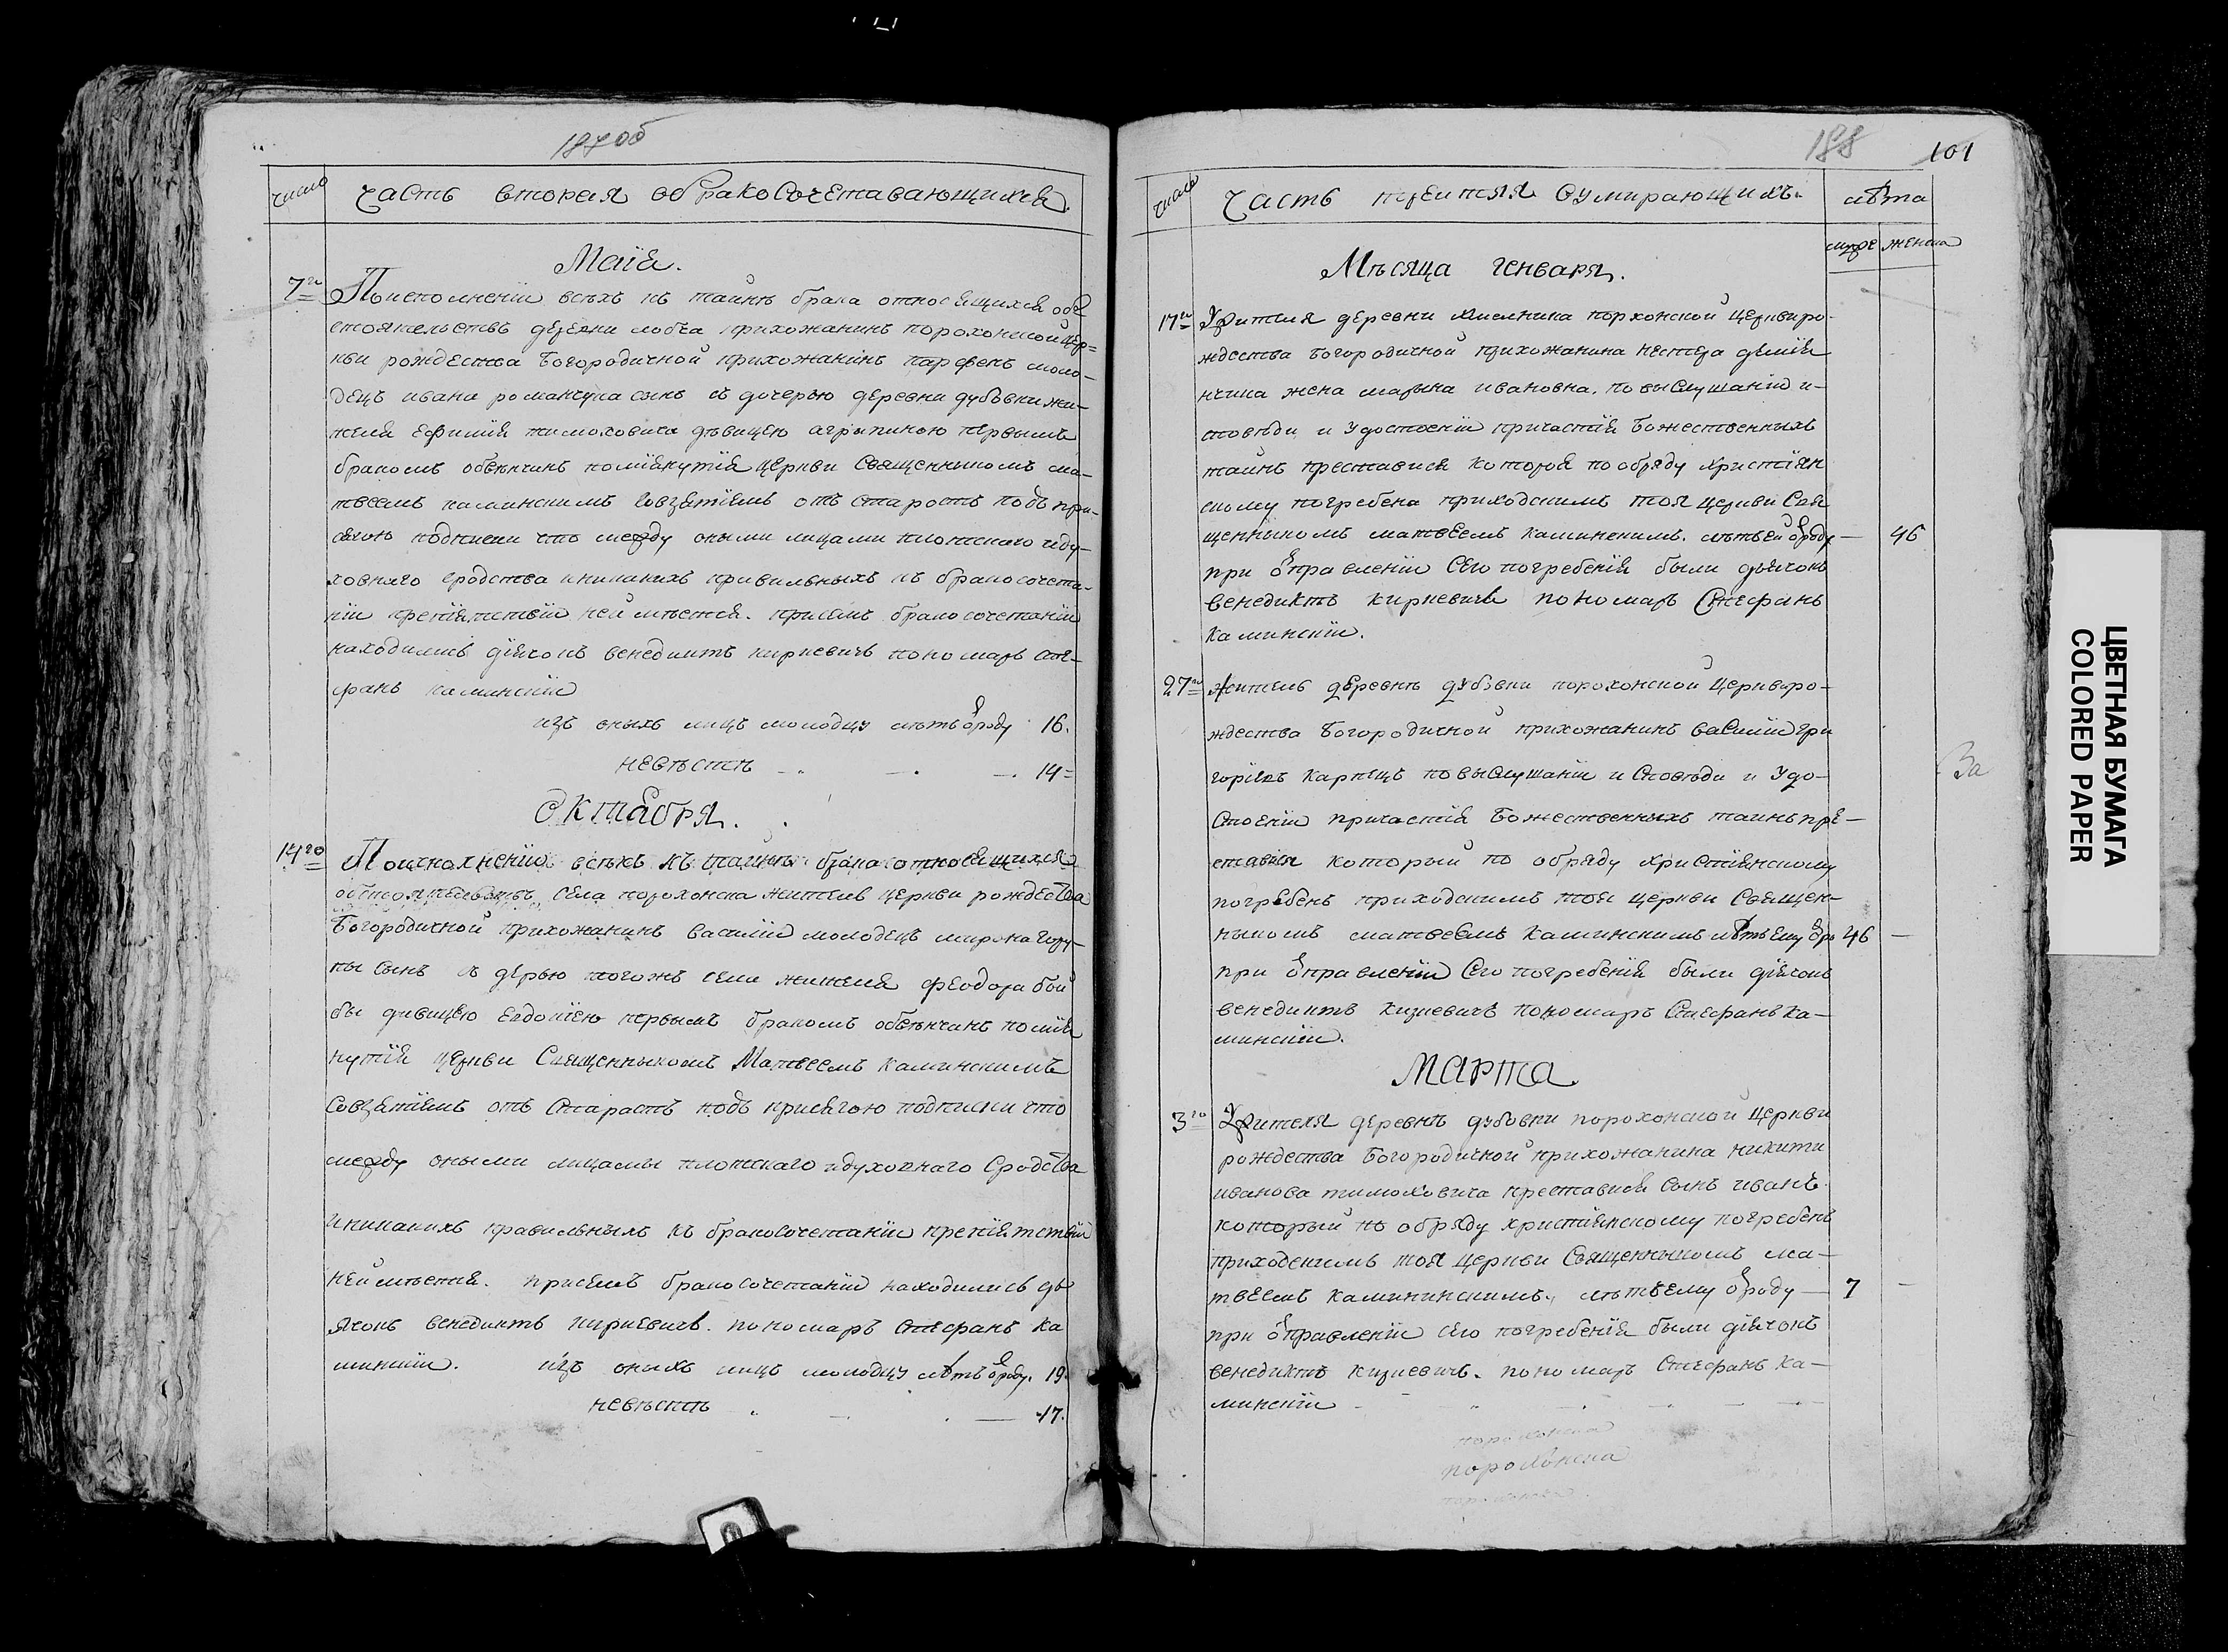 187об
число
Часть вторая обракосочетавающихся.
Маія.
7го
Поисполненіи всѣхъ къ тайнѣ брака относящихся обо
стоятельствъ деревни лобча прихожанинъ порохонской цер=
кви рождества Богородичной прихожанинъ парфенъ моло-
децъ ивана романчука сынъ съ дочерью деревни дубовки жи-
теля ефимія тимоховича дѣвицею агрипиною первымъ
бракомъ обвѣнчанъ помянутія церкви Священникомъ ма-
твеемъ каминскимъ совзятіемъ отъ старостъ подъ при-
сягою подписки что между оными лицами плотскаго иду-
ховнаго сродства иникакихъ правильныхъ къ бракосочета-
ніи препятствіи неимѣется. присемъ бракосочетаніи
находились діячокъ венедиктъ кирневичъ пономарь сте-
фанъ каминскіи
изъ оныхъ лицъ молодцу лѣтъ ѿроду 16.
невѣстѣ — 14=
Октября.
14го
Поисполненіи всѣхъ къ тайнѣ брака относящихся
обстоятельствъ села порохонска житель церкви рождества
Богородичной прихожанинъ василіи молодецъ мирона
сынъ з дерью тогожъ села жителя феодора бои
бы дивицею евдокіею первымъ бракомъ обвѣнчанъ помя
нутія церкви Священныкомъ Матвеемъ Каминскимъ
совзятіемъ отъ старастъ подъ присягою подписки что
между оными лицамы плотскаго идуховнаго сродства
иникакихъ правильныхъ къ бракосочетаніи препятствіи
неимѣется. присемъ бракосочетаніи находились дѣ
ячокъ венедиктъ кирневичъ. пономаръ Стефанъ ка
минскіи. изъ оныхъ лицъ молодцу лѣтъ ѿроду. 19.
невѣстѣ — 17.
188
101
число
Часть третяя оумирающихъ.
лѣта
мужс женска
Мѣсяца генваря.
17го
Жителя деревни порхонской церквиро-
ждества богородичной прихожанина нестера демія
нчика жена марына ивановна. по выслушаніи и-
сповѣди и удостоеніи причастія Божественныхъ
таинъ преставися которая по обряду христіян
скому погребена приходскимъ тоя церкви Свя
щенныкомъ матвеемъ каминскимъ. лѣтъ ей ѿроду — 46
при ѿправленіи сего погребенія были дьячокъ
венедиктъ кирневичъ пономаръ Стефанъ
каминскіи.
27го
житель деревнѣ дубовки порохонской церквиро-
ждества богородичной прихожанинъ василіи гри
горіевъ карпецъ повыслушаніи исповѣди и удо-
стоеніи причастія Божественныхъ таинъ пре-
ставися который по обряду христіянскому
погребенъ приходскимъ тоя церкви Священ-
ныкомъ матвеемъ каминскимъ лѣтъ ему ѿро 46 —
при ѿправленіи сего погребенія были діячокъ
венедиктъ кирневичъ пономаръ Стефанъ ка-
минскіи.
За
Марта
3го
Жителя деревнѣ дубовки порохонской церкви
рождества богородичной прихожанина никити
иванова тимоховича преставися сынъ иванъ.
который по обряду христіянскому погребенъ
приходскимъ тоя церкви Священныкомъ ма-
твеемъ каминнскимъ. лѣтъ ему ѿроду — 7 —
при ѿправленіи сего погребенія были діячокъ
венедиктъ кирневичъ. пономаръ Стефанъ ка-
минскіи
порохонска
порохонска
ЦВЕТНАЯ БУМАГА
COLORED PAPER